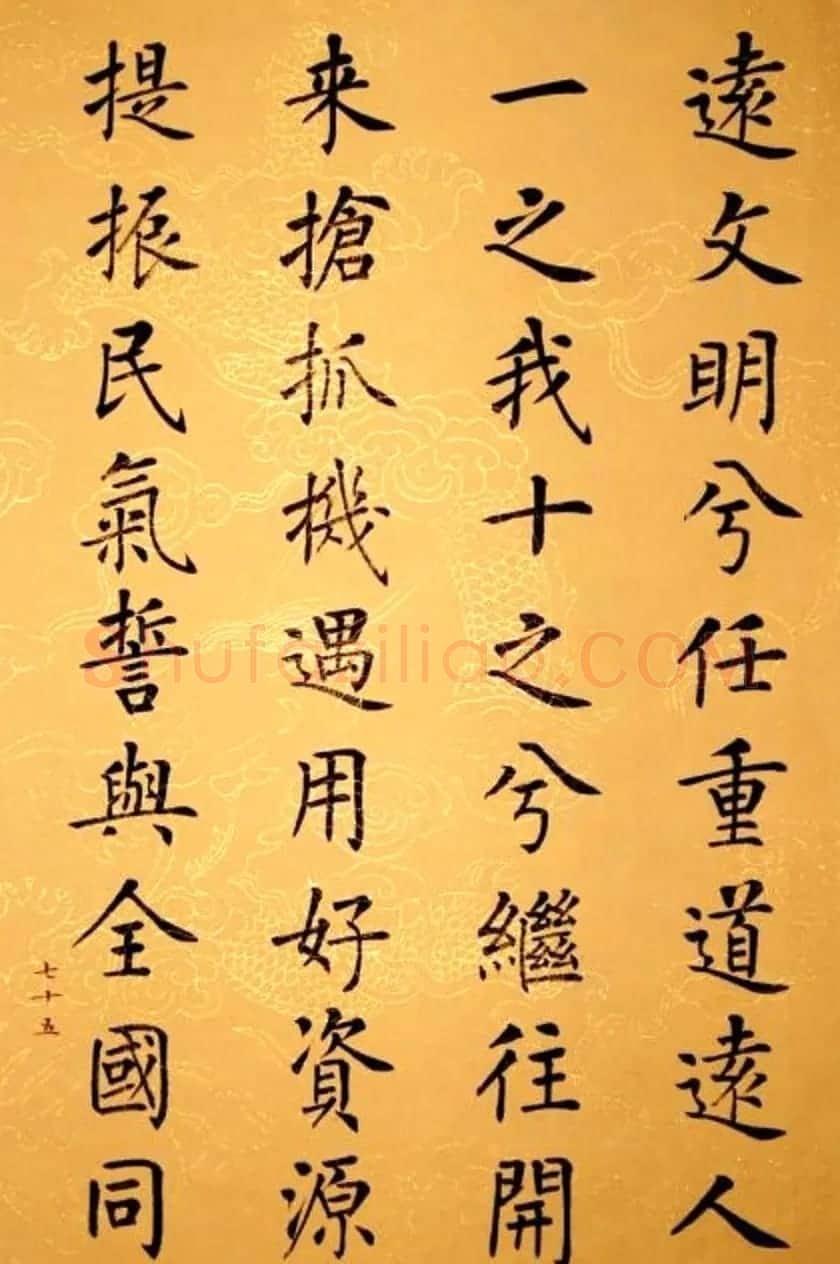 遠文明兮任重道遠人
一之我十之兮繼往開
来搶抓機遇用好資源
提振民氣誓與全國同
七十五
Shufaziliao.COM